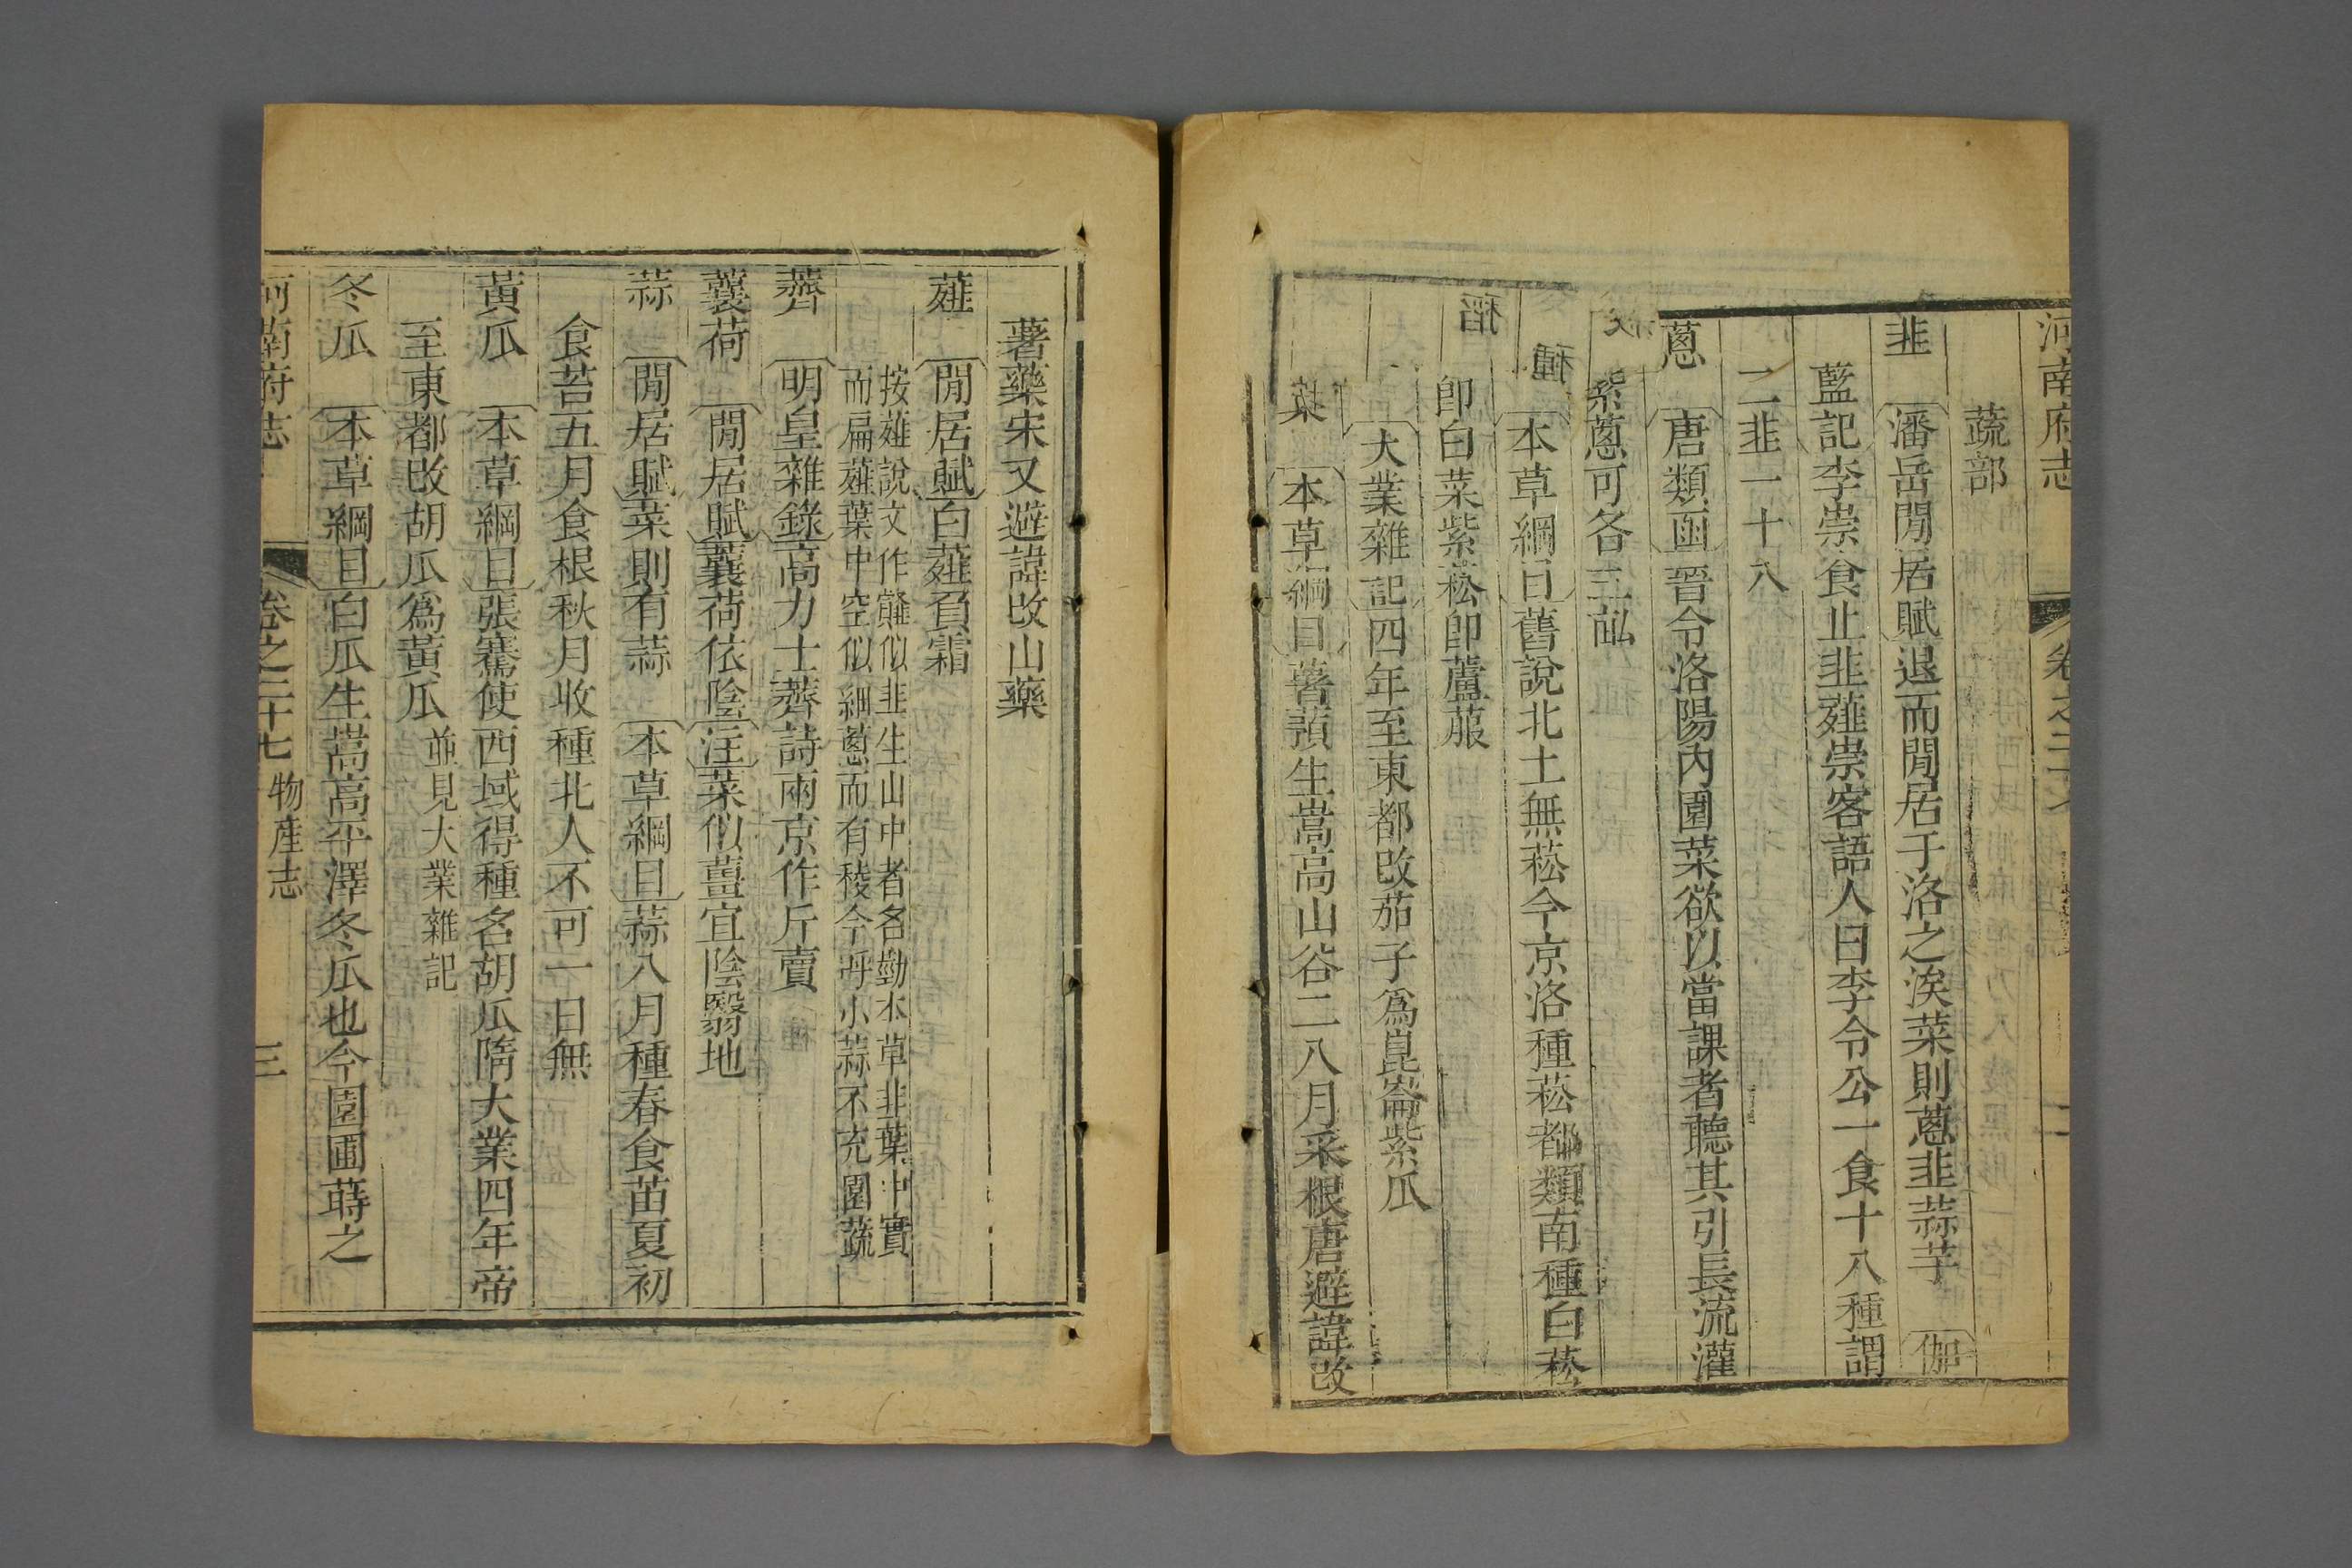 河南府志
卷之二十七
蔬部
韭 潘岳閒居賦退而閒居于洛之涘菜則蔥韭蒜芋 伽
藍記李崇食止韭薤崇客語人曰李令公一食十八種謂
二韭一十八
蔥 唐類函晉令洛陽內園菜欲以當課者聽其引長流灌
紫蔥可各三畝
種 本草綱目舊說北土無菘今京洛種菘都類南種白菘
卽白菜紫菘卽蘆菔
稻
大業雜記四年至東都改茄子爲崑崙紫瓜
本草綱目薯蕷生嵩高山谷二八月采根唐避諱改
薯藥宋又避諱改山藥
薤 閒居賦白薤負霜
按薤說文作䪥似韭生山中者名勤本草韭葉中實
而扁薤葉中空似細蔥而有稜今呼小蒜不充園蔬
薺 明皇雜錄高力士薺詩兩京作斤賣
蘘荷 閒居賦蘘荷依陰注菜似薑宜陰翳地
蒜 閒居賦菜則有蒜 本草綱目蒜八月種春食苗夏初
食苔五月食根秋月收種北人不可一日無
黃瓜 本草綱目張騫使西域得種名胡瓜隋大業四年帝
至東都改胡瓜爲黃瓜 並見大業雜記
冬瓜 本草綱目白瓜生嵩高平澤冬瓜也今園圃蒔之
河南府志 卷之二十七 物產志 三